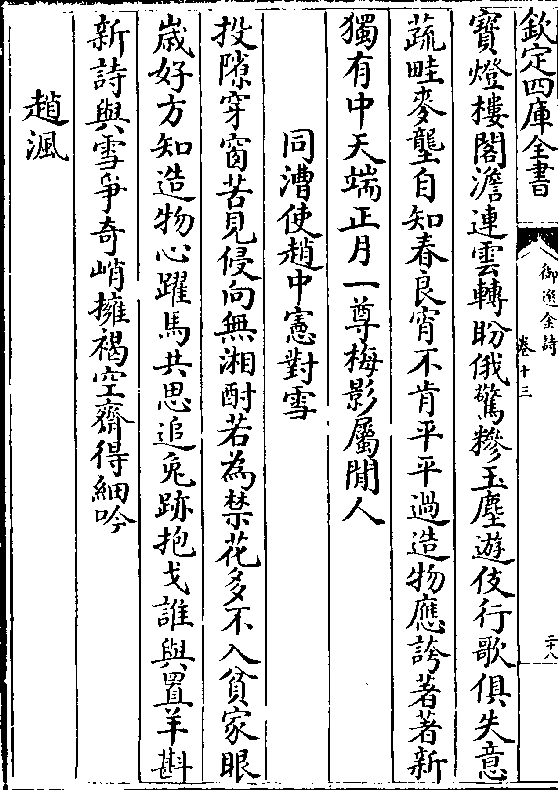 欽定四庫全書
御選金詩
卷十三
二十八
寶燈樓閣澹連雲轉盼俄驚糝玉塵遊伎行歌俱失意
蔬畦麥壟自知春良宵不肯平平過造物應誇著著新
獨有中天端正月一尊梅影屬閒人
同漕使趙中憲對雪
投隙穿窗苦見侵向無湘酎若為禁花多不入貧家眼
歲好方知造物心躍馬共思追兔跡抱戈誰與置羊斟
新詩與雪爭奇峭擁褐空齋得細吟
趙渢